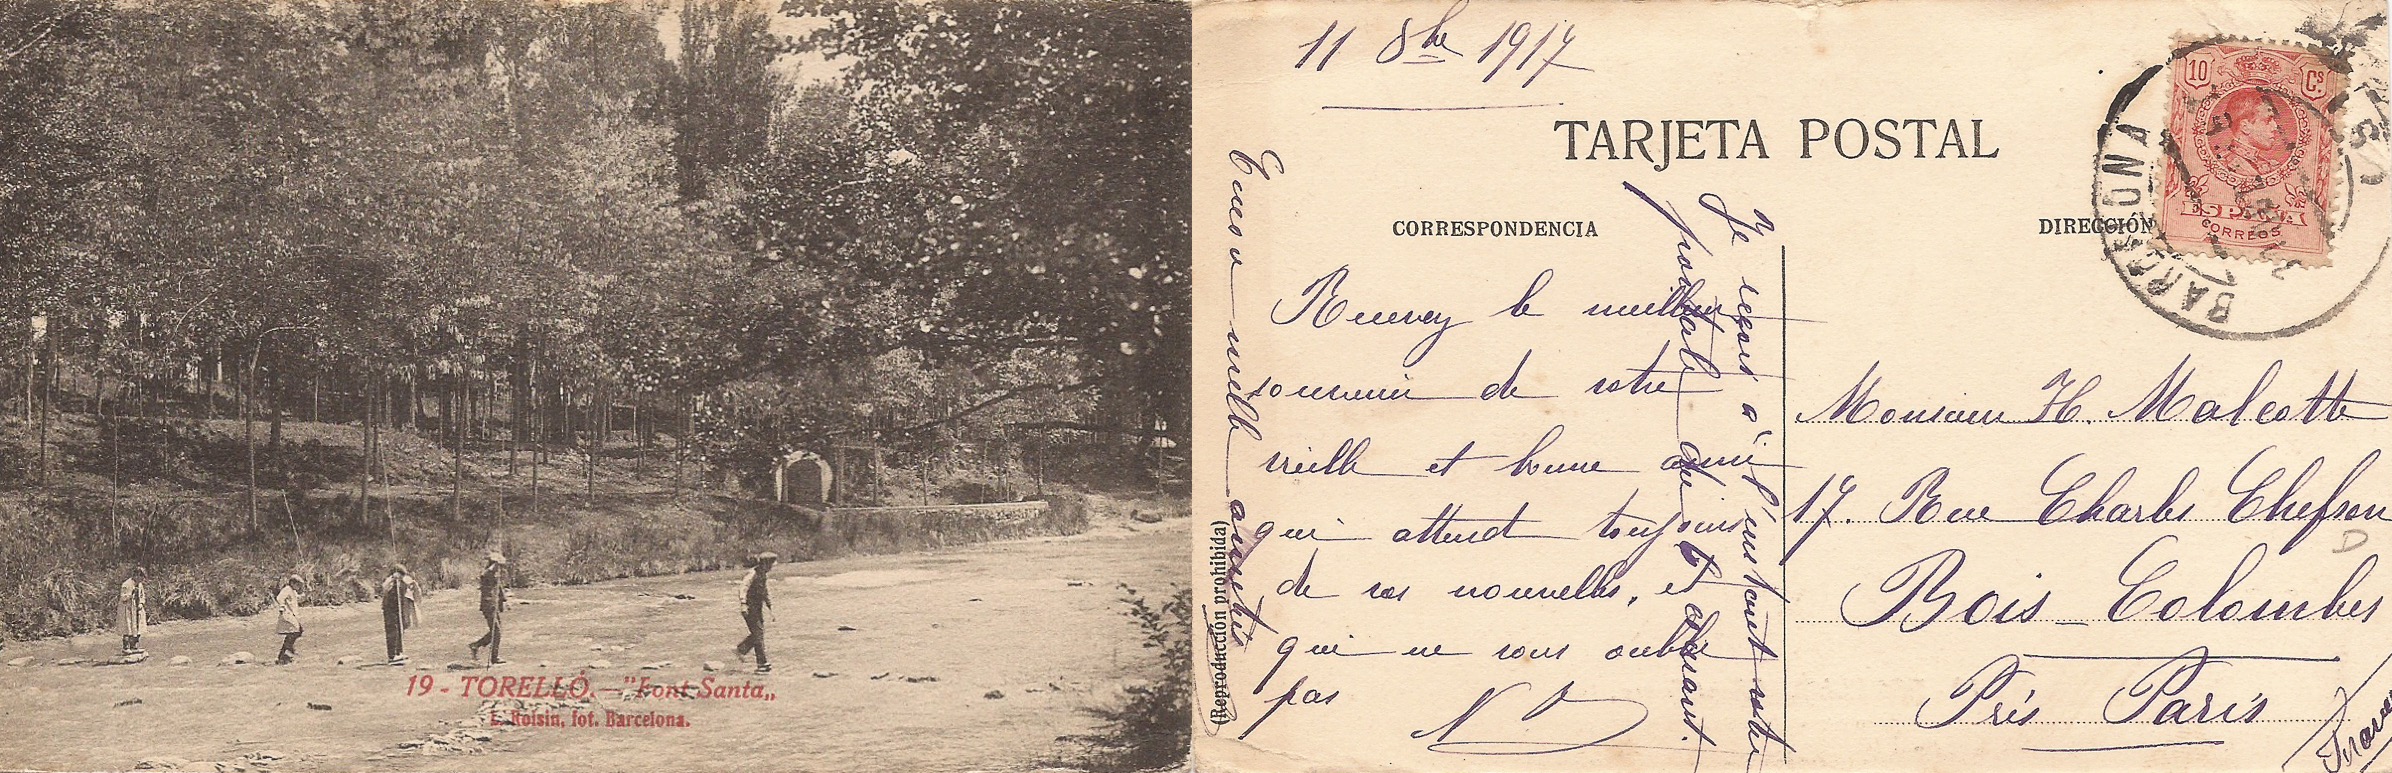 19 - TORELLÓ. — "Font Santa„
L. Roisin, fot. Barcelona.
11 8bre 1917
TARJETA POSTAL
CORRESPONDENCIA
DIRECCIÓN
10 Cs
ESPAÑA
CORREOS
BARCELONA
Recevez le meilleur
souvenir de votre
vieille et bonne amie
qui attend toujours
de vos nouvelles, et
qui ne vous oublie
pas
Je reçois à l'instant votre
postale du
Encore mille amitiés
(Reproducción prohibida)
Monsieur H. Malcotte
17. Rue Charles Chefson
Bois-Colombes
Près Paris